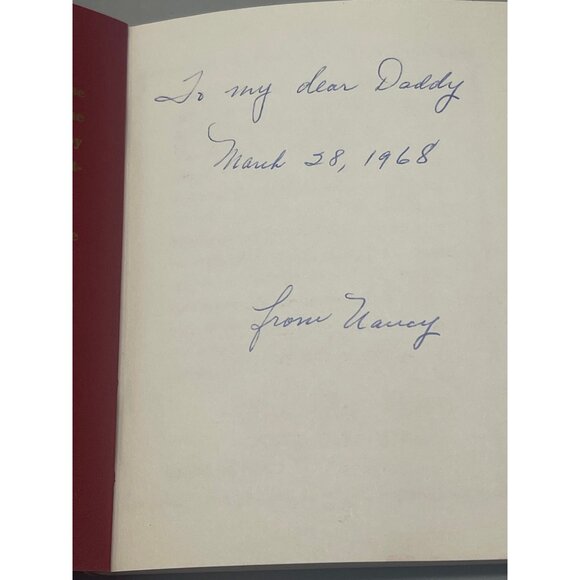 To my dear Daddy
March 28, 1968
from Nancy